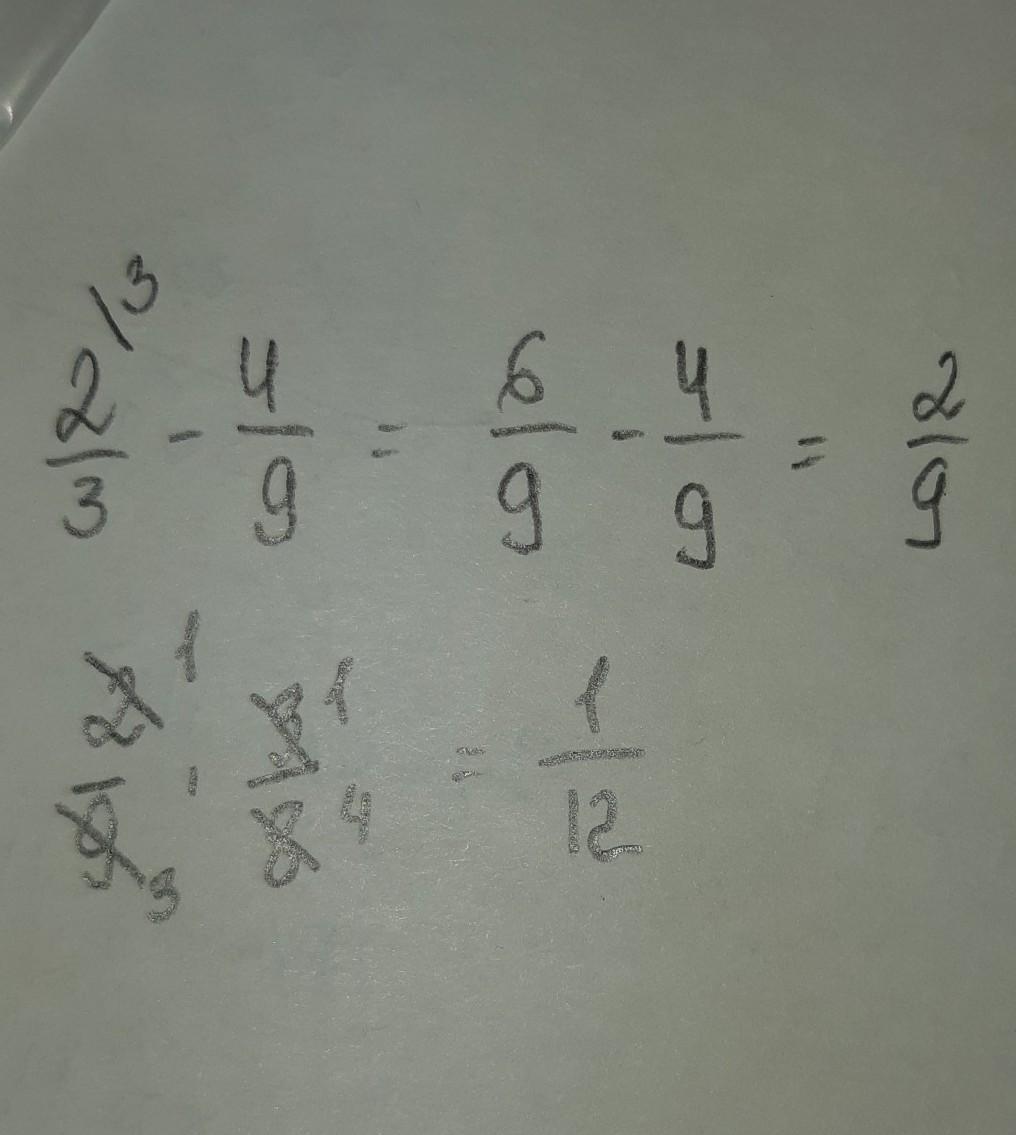 2/3 \3 - 4/9 = 6/9 - 4/9 = 2/9
2/9 1 3 · 3/8 1 4 = 1/12